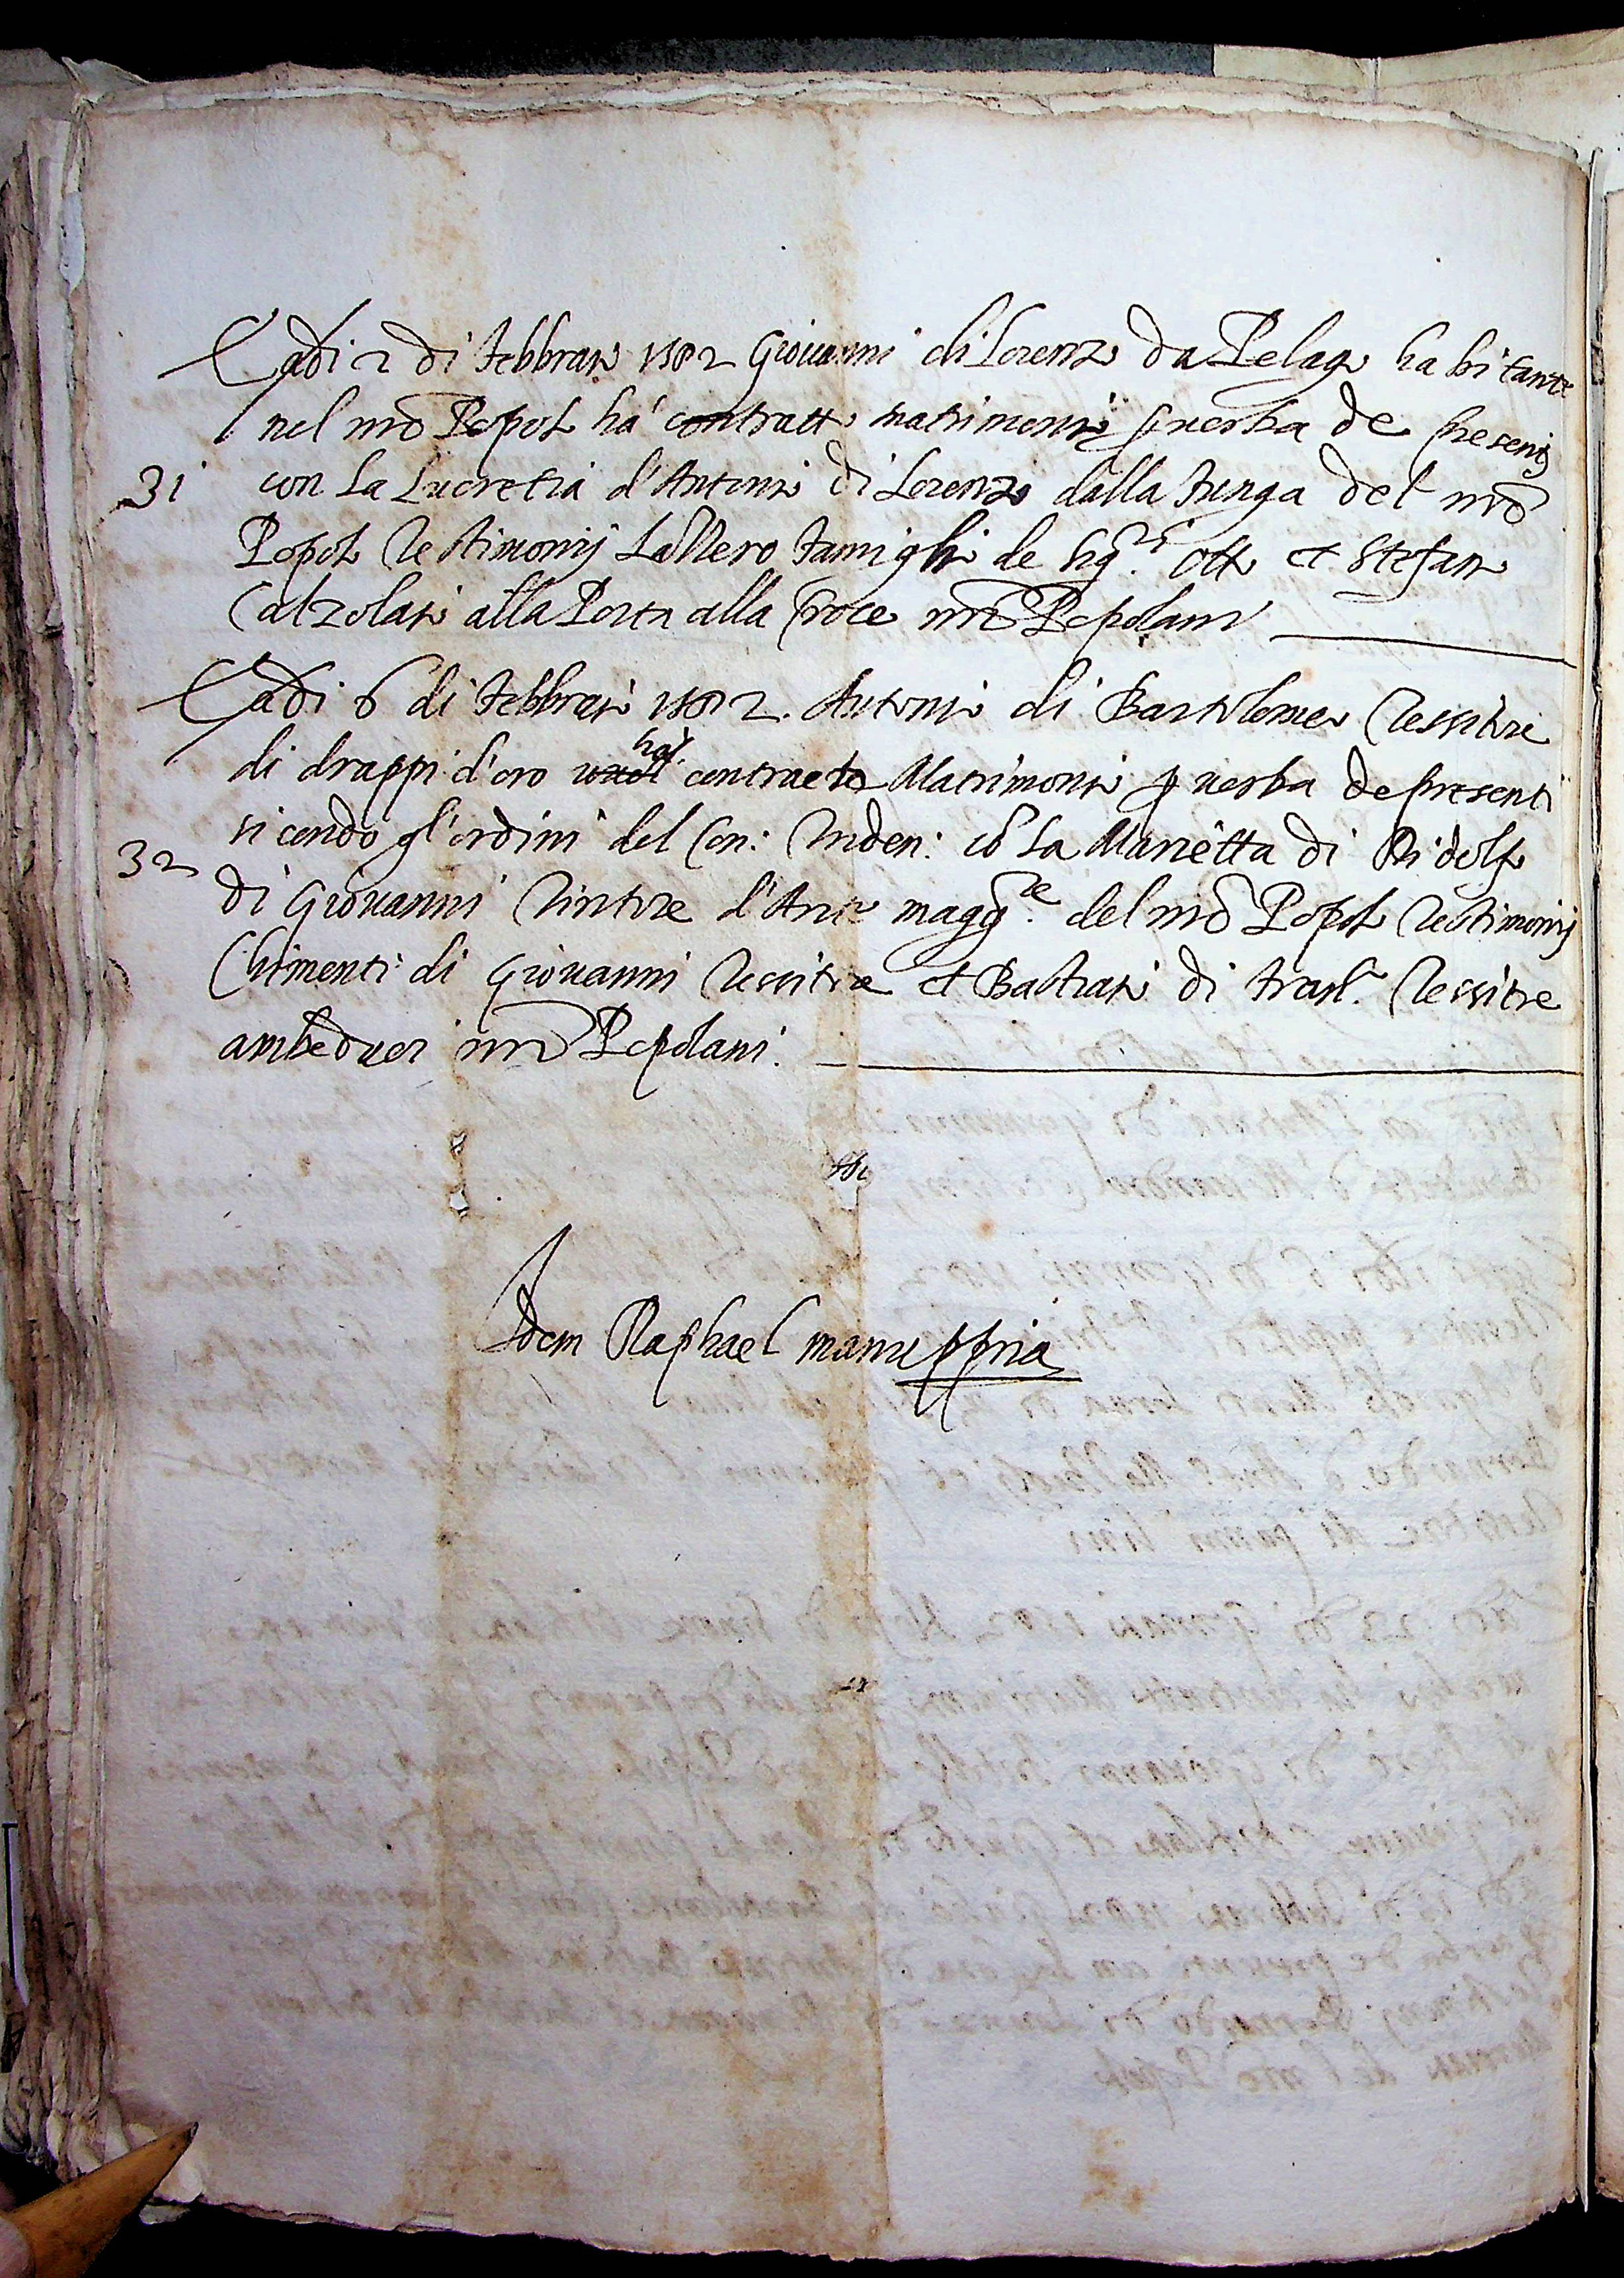 Eadi 2 di Febbraio 1582 Giouanni di Lorenzo da Pelago habitante
nel nrō Popolo há contratto matrimonio p uerba de presenti
31 con La Lucretia d'Antonio di Lorenzo dalla del nrō
Popolo Testimonij famiglio de Sig.ri Otto et Stefano
Calzolaio alla Porta alla Croce nrī Popolani
Eadi 6 di Febbraio 1582. Antonio di Bartolomeo Tessitore
di drappi d'oro há contracto Matrimonio p uerba de presenti
sicondo gl'ordini del Con: Triden: cō La Marietta di Ridolfo
32 di Giouanni Tintore d'Arte magg.re del nrō Popolo Testimonij
Chimenti di Giouanni Tessitore et Bastiano di Fran.co Tessitore
ambeduoi nrī Popolani.
Idem Raphael manu ppria